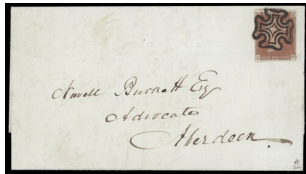 Newell Burnett Esq
Advocate
Aberdeen